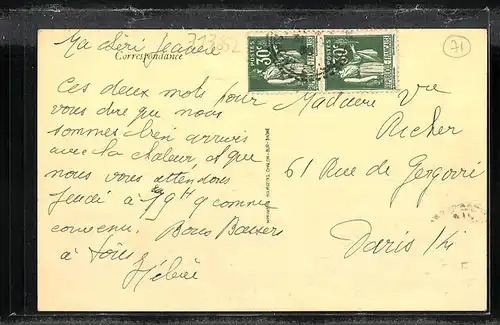 Ma chéri Jeanne
713852
71
Correspondance
Ces deux mots pour
vous dire que nous
sommes bien arrivés
avec la chaleur, et que
nous vous attendons
jeudi à 19H 9 comme
convenu. Bons Baisers
à tous
Hélène
POSTES
30c
POSTES
30c
Madame Vve
Archer
61 Rue de Gergovie
Paris 14